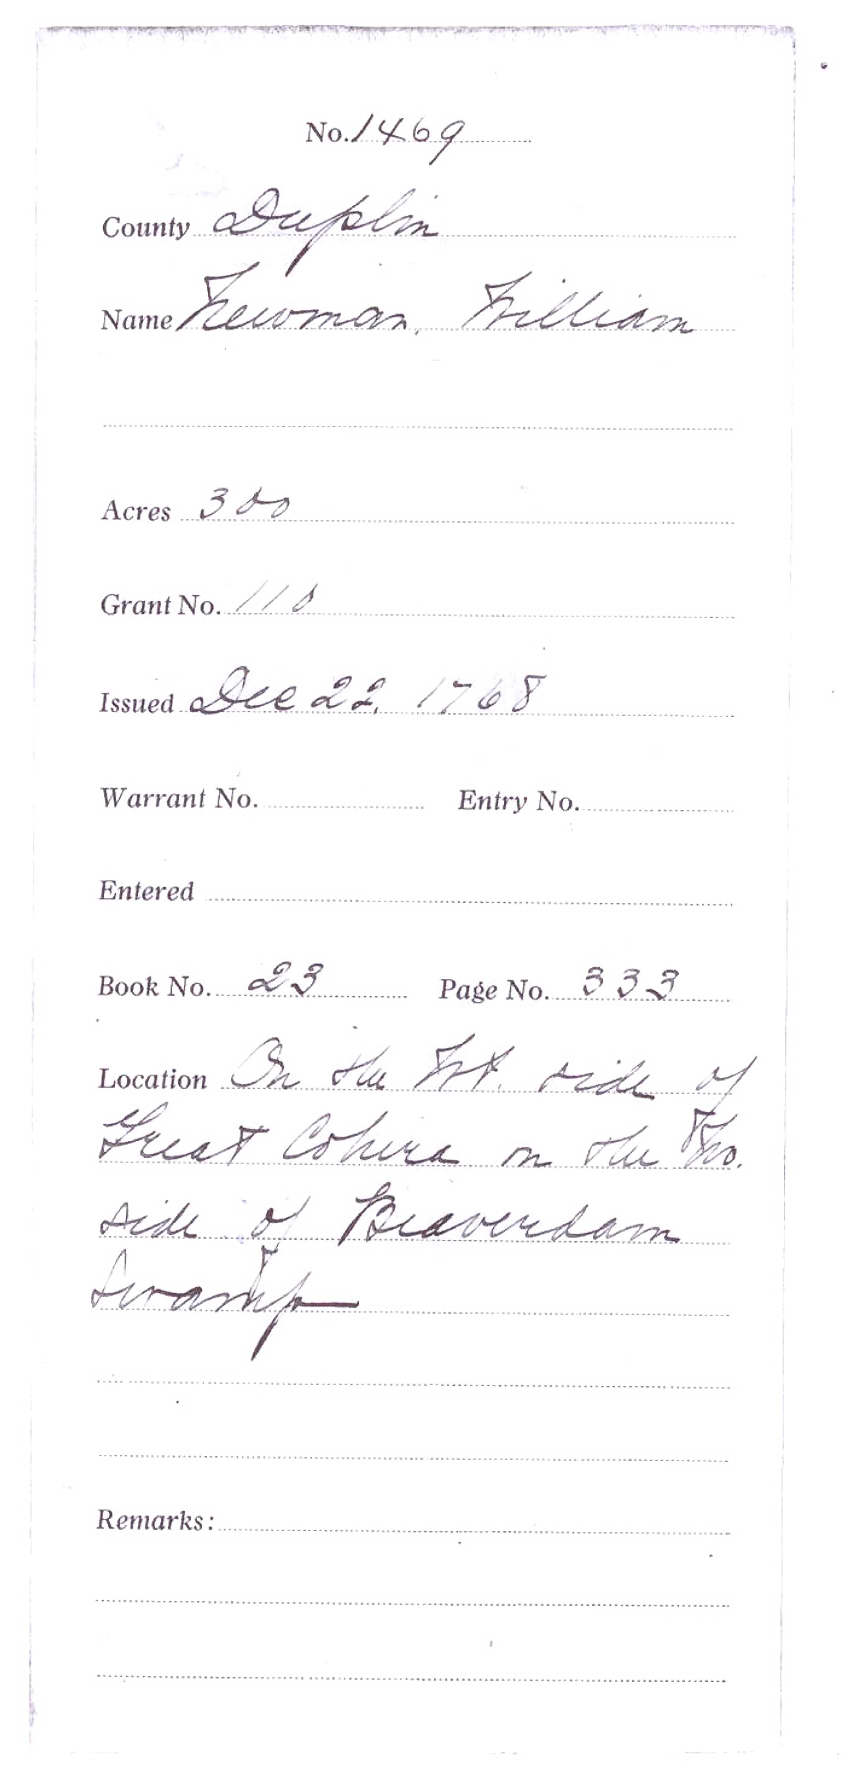 No. 1469
County Duplin
Name Newman, William
Acres 300
Grant No. 110
Issued Dec 22, 1768
Warrant No. Entry No.
Entered
Book No. 23 Page No. 333
Location On the Wt. side of
Great Cohera on the No.
side of Beaverdam
Swamp
Remarks: